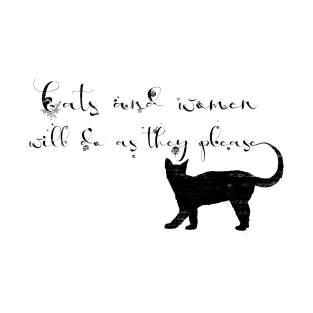 Cats and women
will do as they please